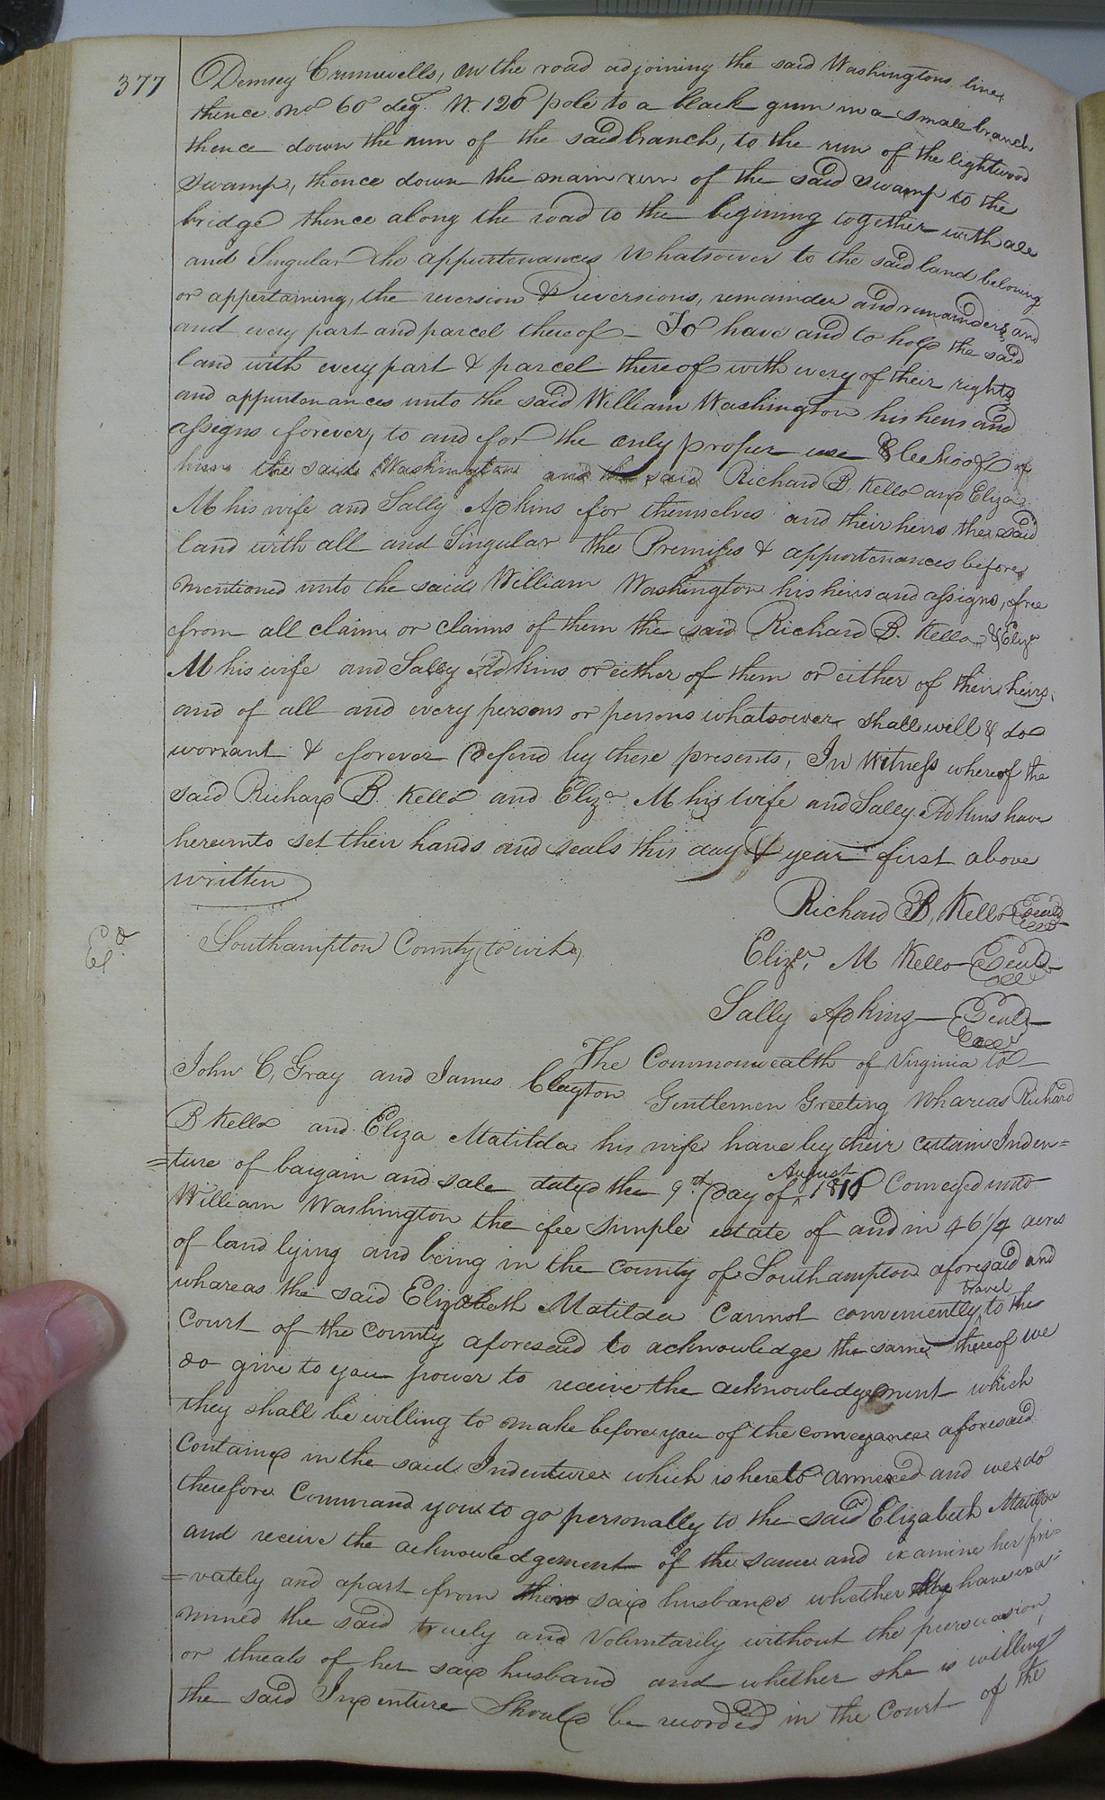 377
Demsey Crumwells, on the road adjoining the said Washingtons line
thence No 60 deg. W 120 pole to a black gum in a small branch
thence down the run of the said branch, to the run of the lightwood
swamp, thence down the main run of the said swamp to the
bridge thence along the road to the begining together with all
and Singular the appurtenances whatsoever to the said land belonig
or appertaining, the reversion & reversions, remainder and remainders and
and every part and parcel thereof - To have and to hold the said
land with every part & parcel thereof with every of their rights
and appurtenances unto the said William Washington his heirs and
assigns forever, to and for the only proper use & behoof of
him the said Washington and the said Richard B. Kello and Eliza
M his wife and Sally Adkins for themselves and their heirs the said
land with all and Singular the Premises & appurtenances before
mentioned unto the said William Washington his heirs and assigns, free
from all claim or claims of them the said Richard B. Kello & Eliza
M his wife and Sally Adkins or either of them or either of their heirs
and of all and every persons or persons whatsoever shall will & do
warrant & forever Defend by these presents, In Witness whereof the
said Richard B. Kello and Eliza M his wife and Sally Adkins have
hereunto set their hands and seals this day & year first above
written
Richard B. Kello Seal
Eliza. M Kello Seal
Sally Adkins Seal
Southampton County (to wit)
The Commonwealth of Virginia to
John C, Gray and James Clayton Gentlemen Greeting Whareas Richard
B Kello and Eliza Matilda his wife have by their certain Inden=
=ture of bargain and sale dated the 9th day of August 1816 Conveyed unto
William Washington the fee Simple estate of and in 46 1/4 acres
of land lying and being in the county of Southampton aforesaid and
whareas the said Elizabeth Matilda Cannot conveniently travel to the
Court of the County aforesaid to acknowledge the same thereof we
do give to you power to receive the acknowledgement which
they shall be willing to make before you of the conveyance aforesaid
Contained in the said Indenture which is hereto annexed and we do
therefore Command you to go personally to the said Elizabeth Matilda
and receive the acknowledgement of the same and examine her pri=
=vately and apart from said husband whether they have exa=
mined the said truely and Voluntarily without the persuasion
or threats of her said husband and whether she is willing
the said Indenture Should be recorded in the Court of the